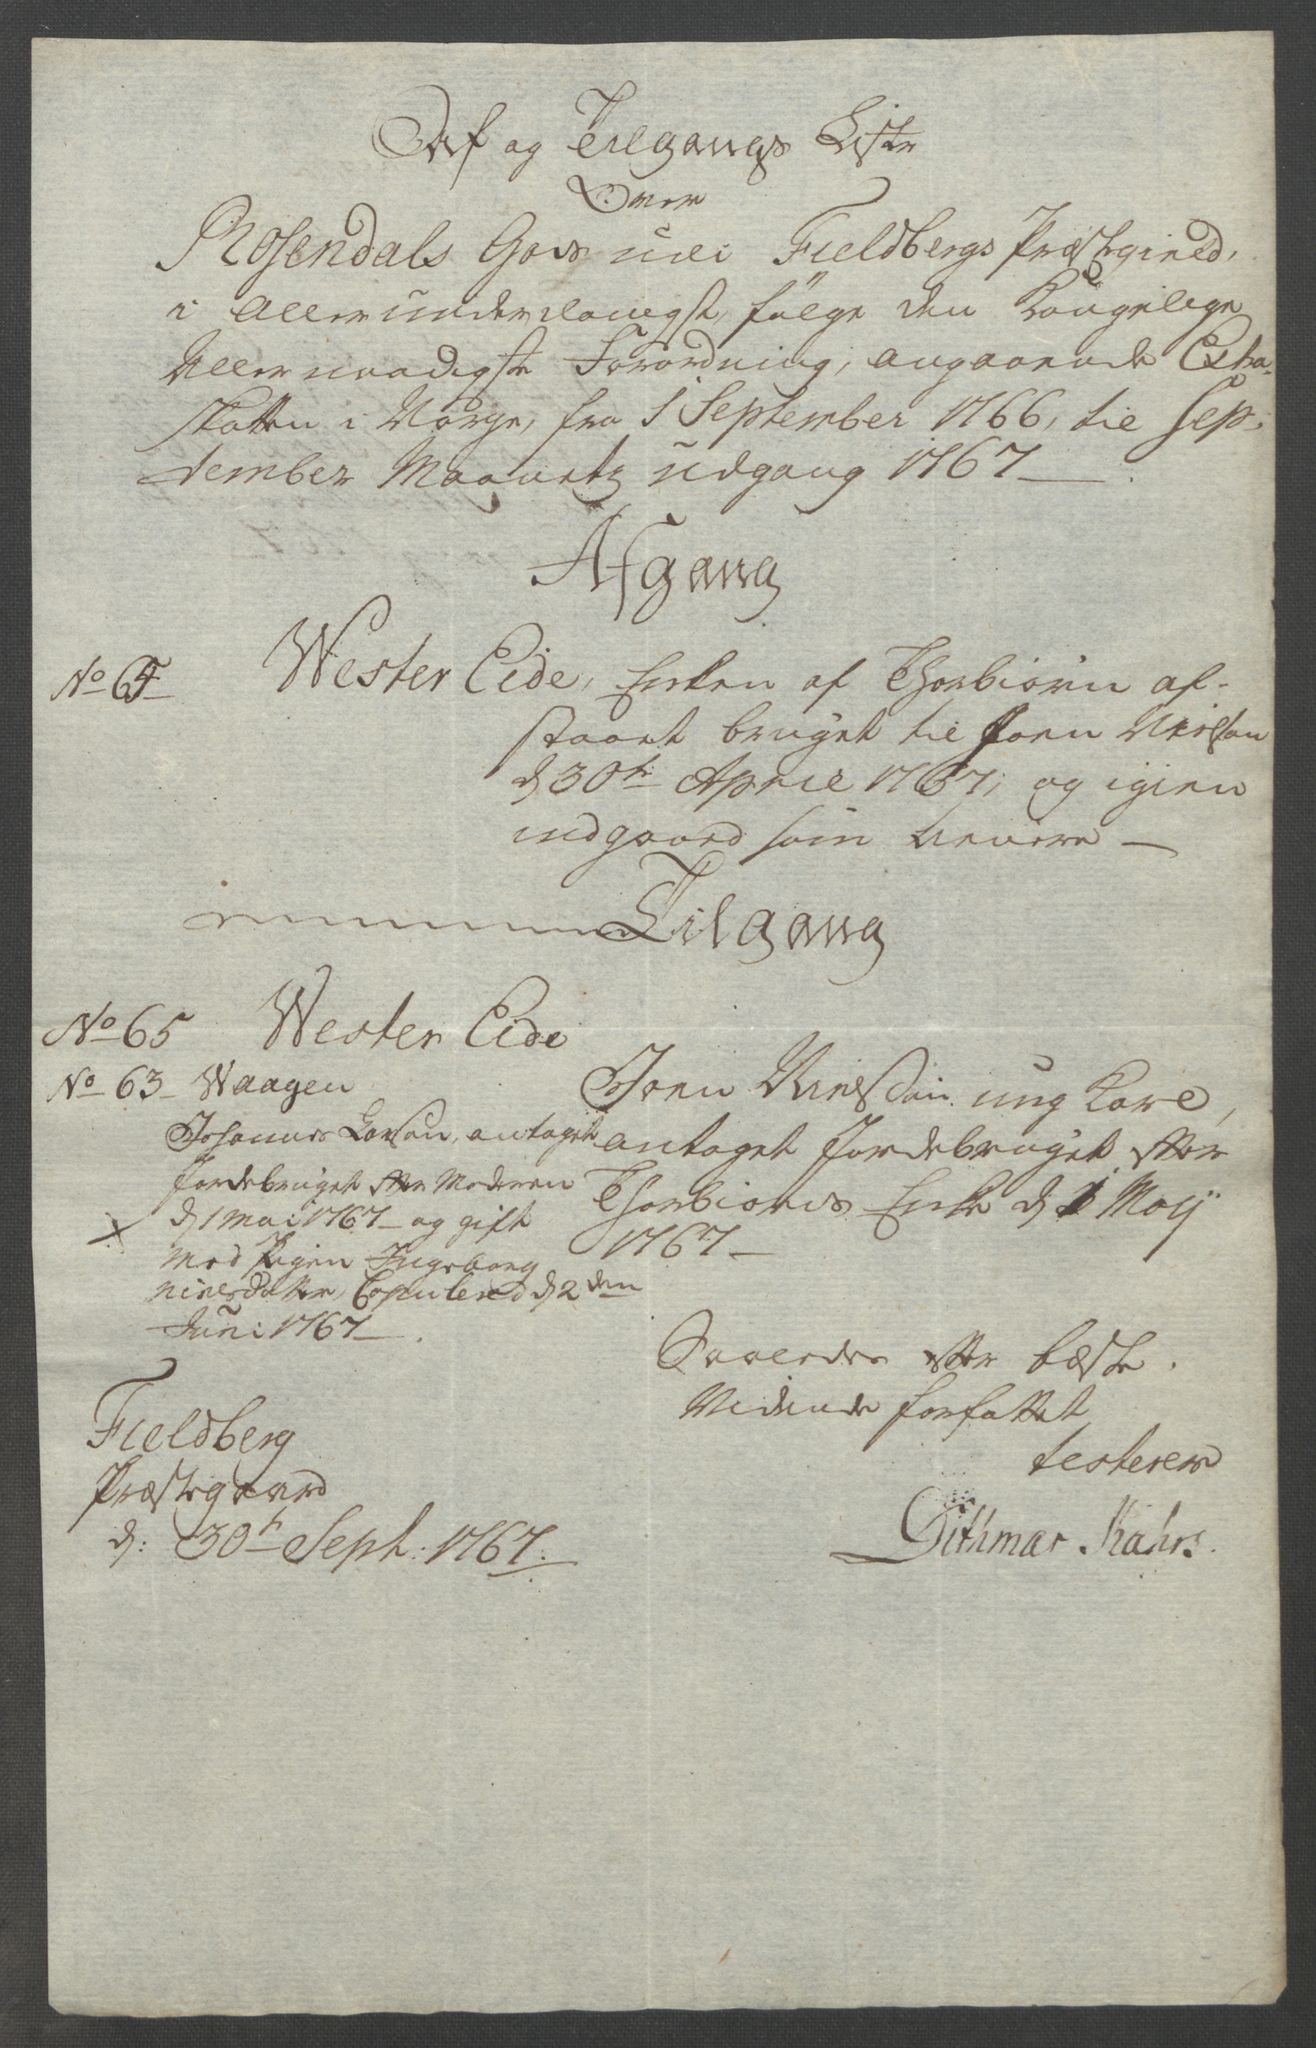 Af og Tilgangs Liste
Over
Rosendals Gods udi Fieldbergs Præstegield,
i Allerunderdanigst følge den Kongelige
Allernaadigste Forordning, angaaende Extra-
skatten i Norge, fra 1 September 1766, til Sep-
tember Maanetz udgang 1767
Afgang
No 65 Wester Eide, Enken af Thorbiørn af-
staaet bruget til Joen Nielsøn
d 30te April 1767, og igien
indgaaed som
Tilgang
No 65 Wester Eide
Joen Nielsøn ung Karl,
antaget Jordebruget efter
Thorbiørns Enke d 1 Maij
1767
No 63 Waagen
Johannes Larsøn, antaget
Jordebruget efter Moderen
d 1 Mai 1767 og gift
med Pigen Ingeborg
Nielsdatter, Copulered d 2den
Juni 1767
Saaledes efter bæste
Vidende forfattet
testerer
Dithmar Kahrs.
Fieldberg
Præstegaard
d: 30te Sept: 1767.